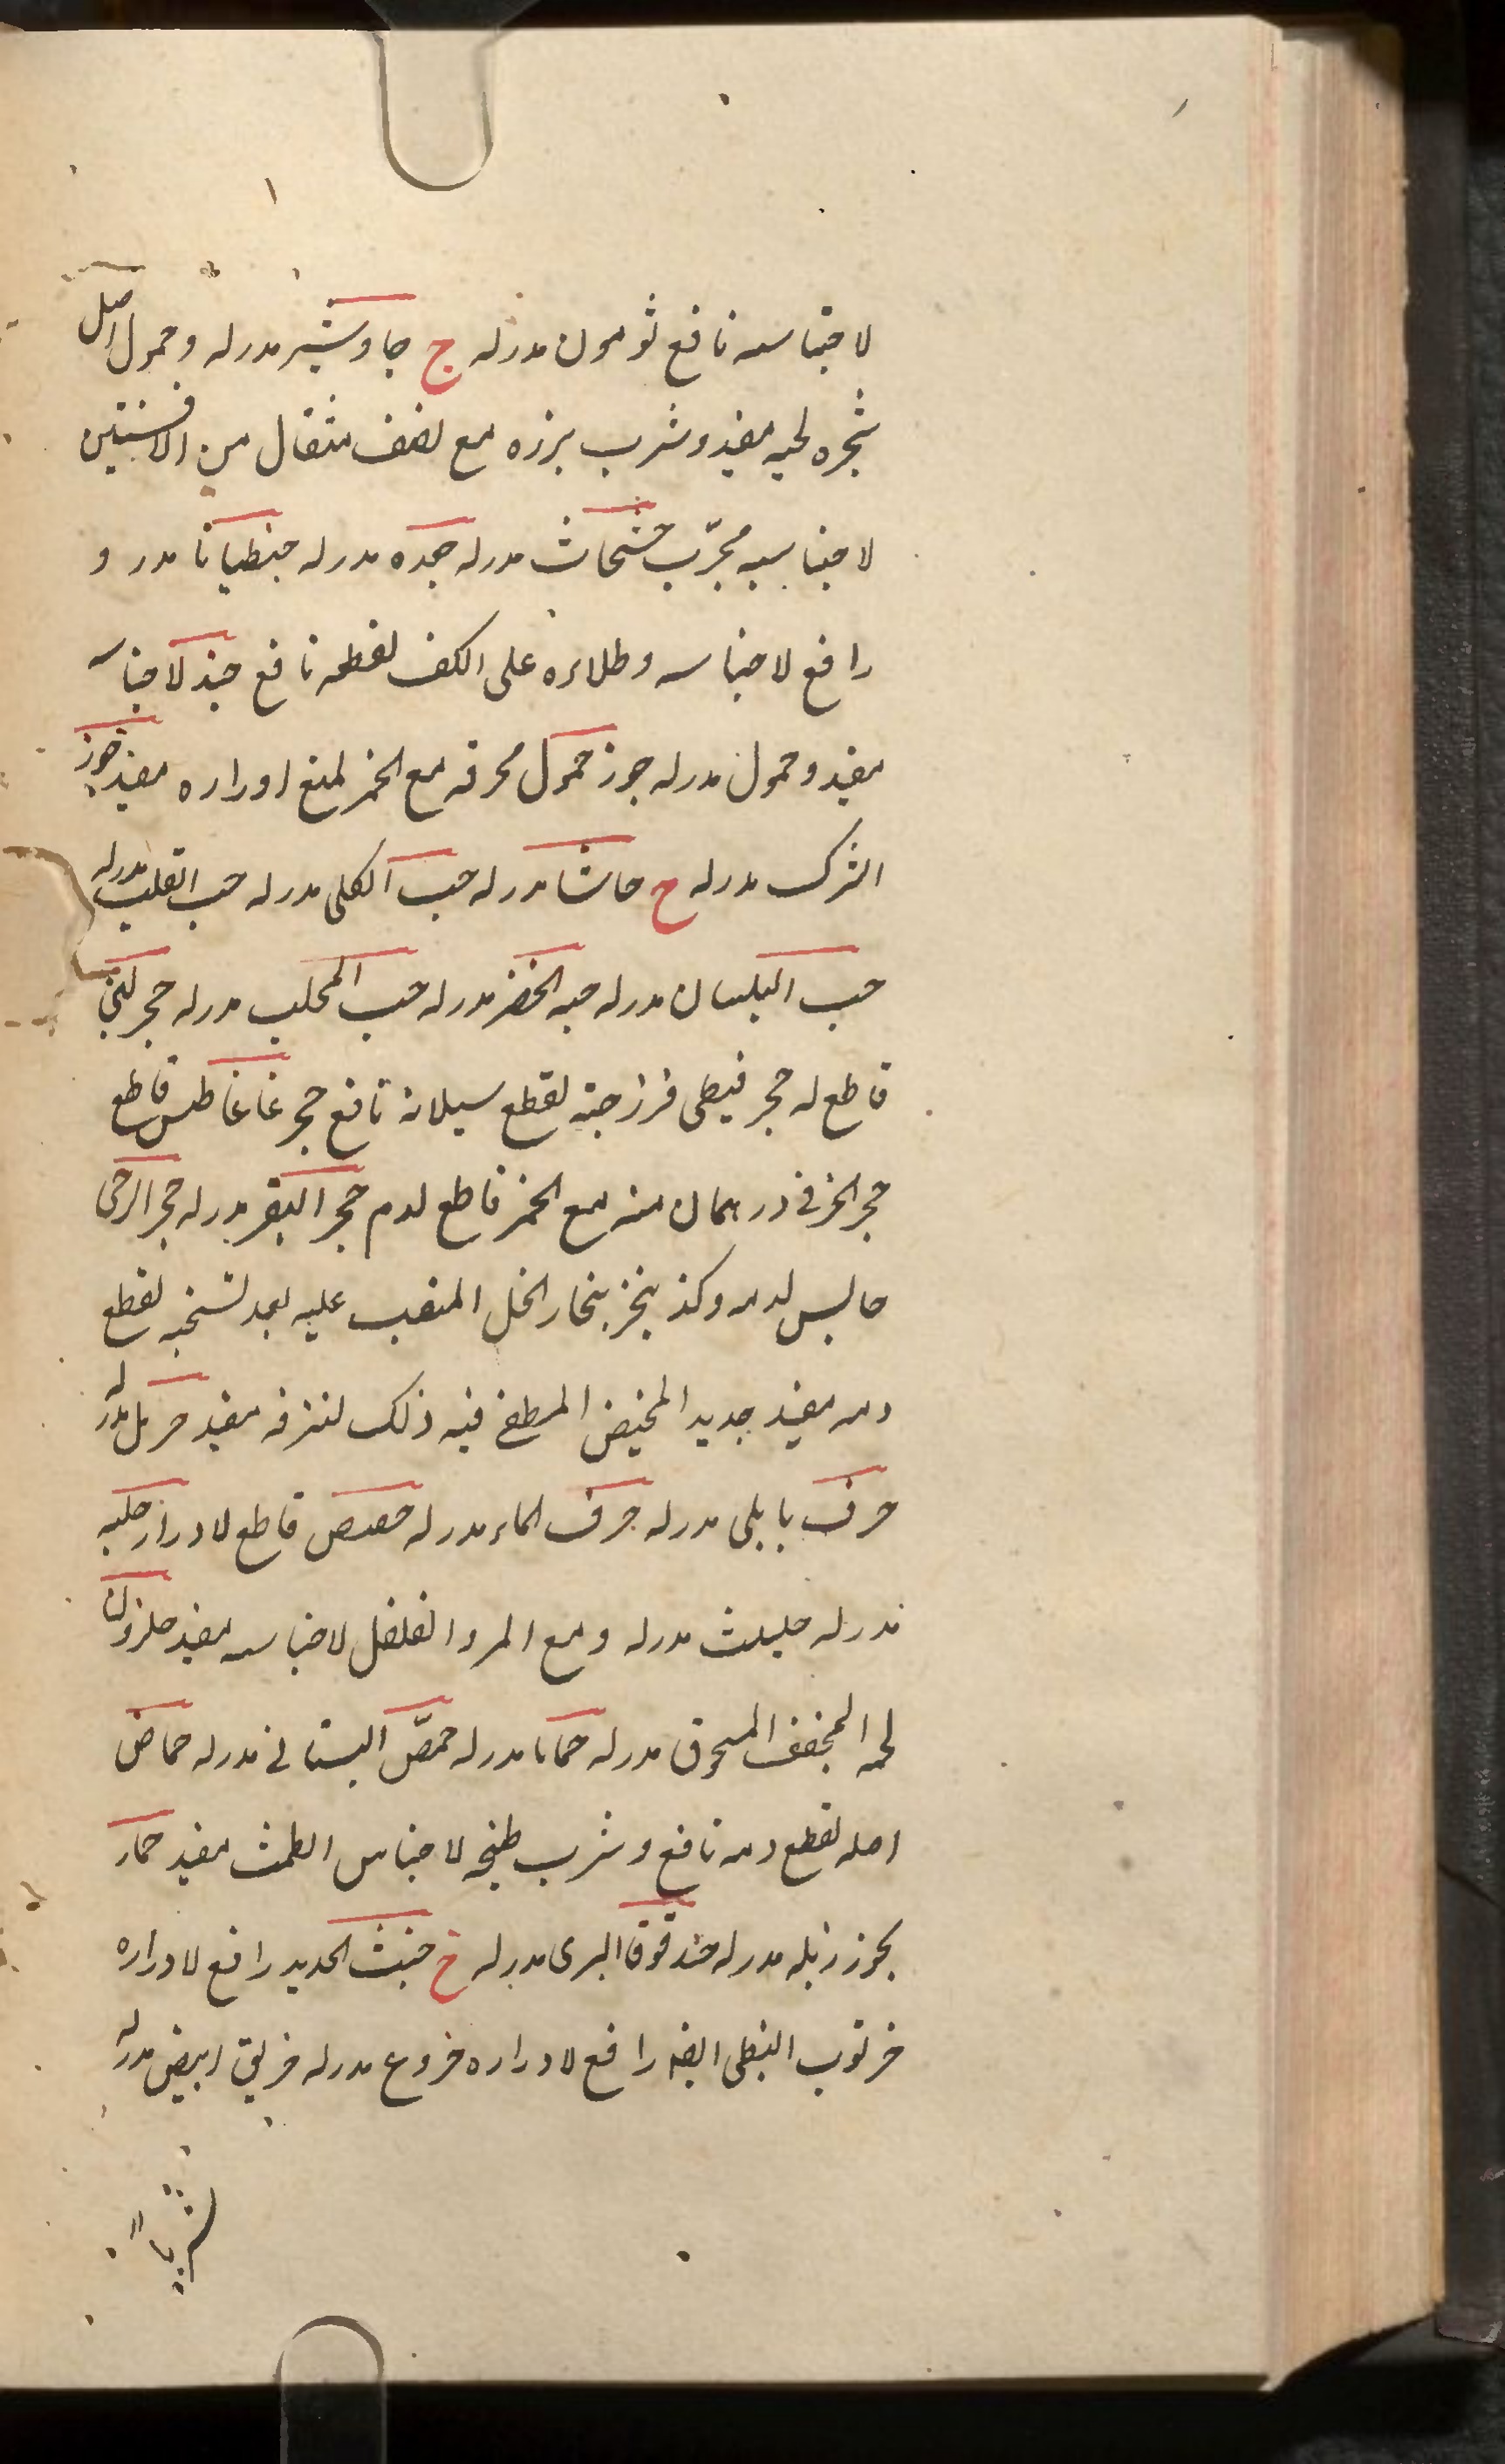 لاحتباسه نافع ثومون مدر له ج جاوشير مدر له وحمول اصل
شجره لحيه مفيد وشرب بزره مع نصف مثقال من الافسنتين
لاحتباسه مجرّب مدر له جعده مدر له جنطيانا مدر و
رافع لاحتباسه وطلاءه على الكف لقطعه نافع جند لاحتباسه
مفيد وحمول مدر له جوز حمول محرقه مع الخمر لمنع ادراره مفيد جوز
الشرك مدر له ح حاشا مدر له حب الكلى مدر له حب القلب مدر له
حب البلسان مدر له حبه الخضر مدر له حب المحلب مدر له حجر لبنى
قاطع له حجر قبطى فرزجته لقطع سيلانه نافع حجر غاغاطس قاطع
حجر الخزفى درهمان منه مع الخمر قاطع لدم حجر البقر مدر له حجر الرحى
حابس لدمه وكذ بخار الخل المنصب عليه بعد تسخينه لقطع
دمه مفيد حديد المخيض المطفى فيه ذلك لنزفه مفيد حرمل مدر له
حرف بابلى مدر له حرف الماء مدر له حصص قاطع لادرار حلبه
مدر له حليث مدر له ومع المر والفلفل لاحتباسه مفيد حلزون
لحمه المجفف المسحوق مدر له حماما مدر له حمّص البستانى مدر له حماض
اصله لقطع دمه نافع وشرب طبيخه لاحتباس الطمث مفيد حمار
بخور زبله مدر له حندقوقا البرى مدر له خ خبث الحديد رافع لادراره
خرنوب النبطى ايضا رافع لادراره خروع مدر له خربق ابيض مدر له
شربا